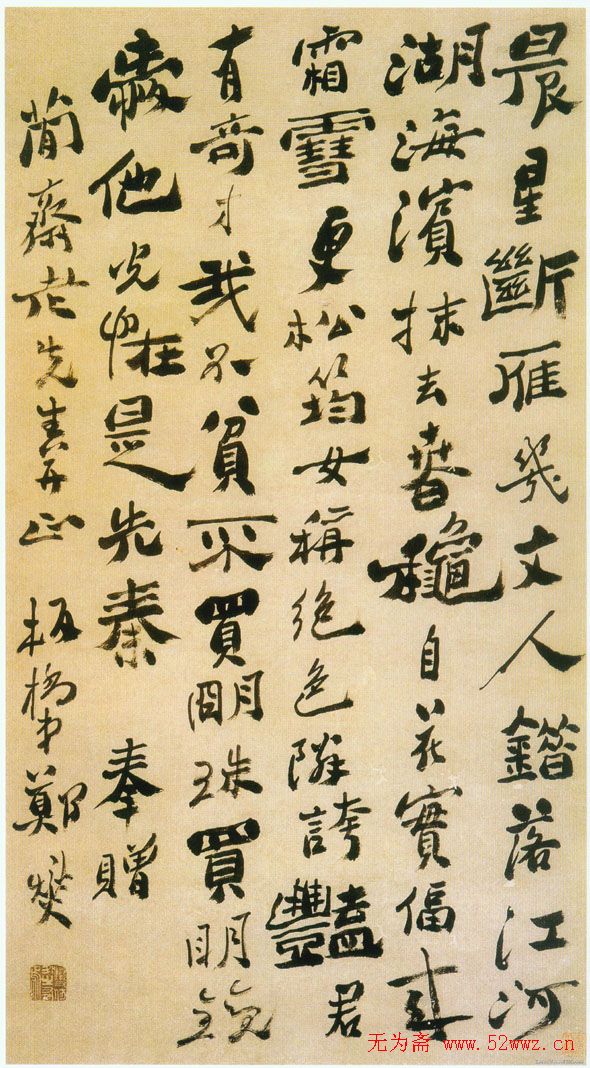 晨星斷雁幾文人錯落江河
湖海濱抹去春龝自花實偪來
霜雪更松筠女稱絕色鄰誇豔君
有奇才我不貧不買明珠買明鏡
愛他光怪是先秦 奉贈
簡齋老先生正 板橋弟鄭燮
无为斋 www.52wwz.cn